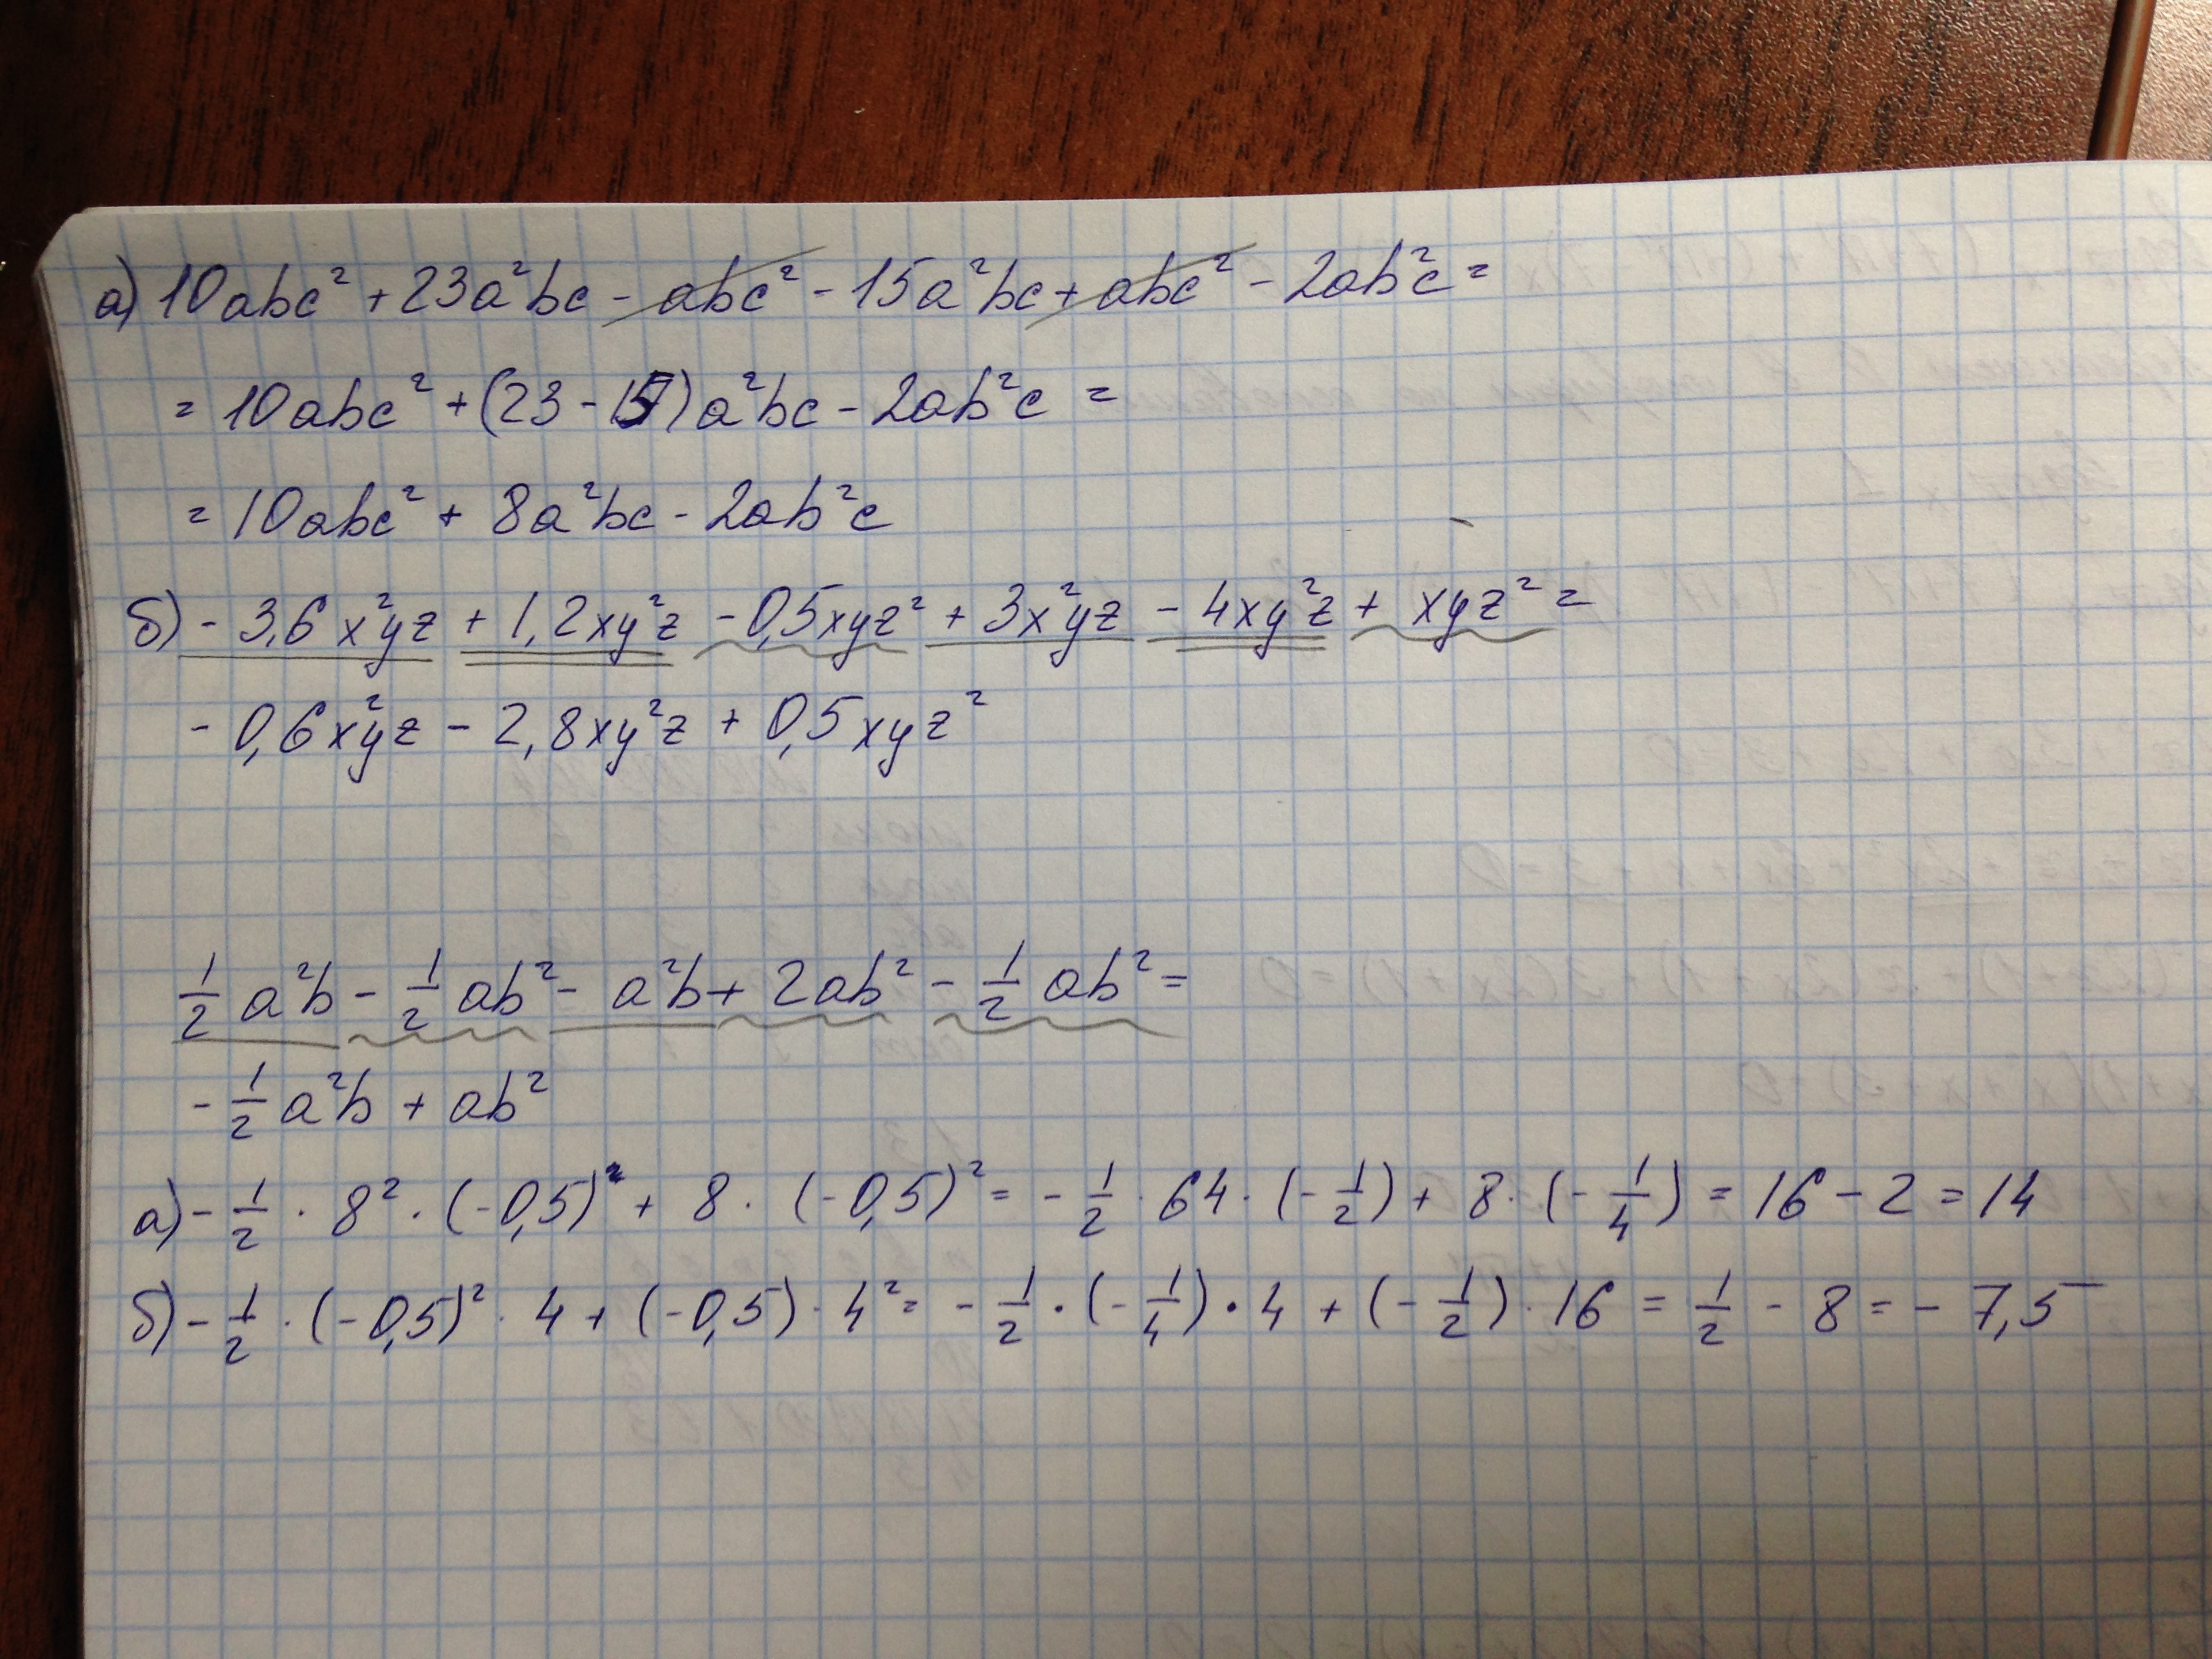 а) 10abc² + 23a²bc - abc² - 15a²bc + abc² - 2ab²c =
= 10abc² + (23 - 15)a²bc - 2ab²c =
= 10abc² + 8a²bc - 2ab²c
б) - 3,6x²yz + 1,2xy²z - 0,5xyz² + 3x²yz - 4xy²z + xyz² =
- 0,6x²yz - 2,8xy²z + 0,5xyz²
1/2 a²b - 1/2 ab² - a²b + 2ab² - 1/2 ab² =
- 1/2 a²b + ab²
а) - 1/2 · 8² · (-0,5) + 8 · (-0,5)² = - 1/2 · 64 · (- 1/2) + 8 · (- 1/4) = 16 - 2 = 14
б) - 1/2 · (-0,5)² · 4 + (-0,5) · 4² = - 1/2 · (- 1/4) · 4 + (- 1/2) · 16 = 1/2 - 8 = - 7,5